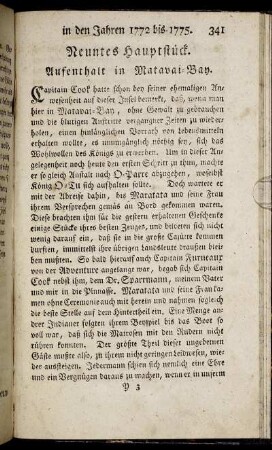 in den Jahren 1772 bis 1775. 341
Neuntes Hauptstück.
Aufenthalt in Matavai-Bay.
Capitain Cook hatte schon bey seiner ehemaligen An-
wesenheit auf dieser Insel bemerkt, daß, wenn man
hier in Matavai-Bay, ohne Gewalt zu gebrauchen
und die blutigen Auftritte vergangner Zeiten zu wieder-
holen, einen hinlänglichen Vorrath von Lebensmitteln
erhalten wollte, es unumgänglich nöthig sey, sich das
Wohlwollen des Königs zu erwerben. Um in dieser An-
gelegenheit noch heute den ersten Schritt zu thun, machte
er so gleich Anstalt nach O-Parre abzugehen, woselbst
König O-Tu sich aufhalten sollte. Doch wartete er
mit der Abreise dahin, bis Maratata und seine Frau
ihrem Versprechen gemäß an Bord gekommen waren.
Diese brachten ihm für die gestern erhaltenen Geschenke
einige Stücke ihres besten Zeuges, und bildeten sich nicht
wenig darauf ein, daß sie in die große Cajütte kommen
durften, immittelst ihre übrigen Landsleute draußen blei-
ben mußten. So bald hierauf auch Capitain Furneaux
von der Adventure angelangt war, begab sich Capitain
Cook nebst ihm, dem Dr. Sparrmann, meinem Vater
und mir in die Pinnasse. Maratata und seine Frau ka-
men ohne Ceremonie auch mit herein und nahmen sogleich
die beste Stelle auf dem Hintertheil ein. Eine Menge an-
drer Indianer folgten ihrem Beyspiel bis das Boot so
voll war, daß sich die Matrosen mit den Rudern nicht
rühren konnten. Der größte Theil dieser ungebetenen
Gäste mußte also, zu ihrem nicht geringen Leidwesen, wie-
der aussteigen. Jedermann schien sich nemlich eine Ehre
und ein Vergnügen daraus zu machen, wenn er in unserm
Y 3